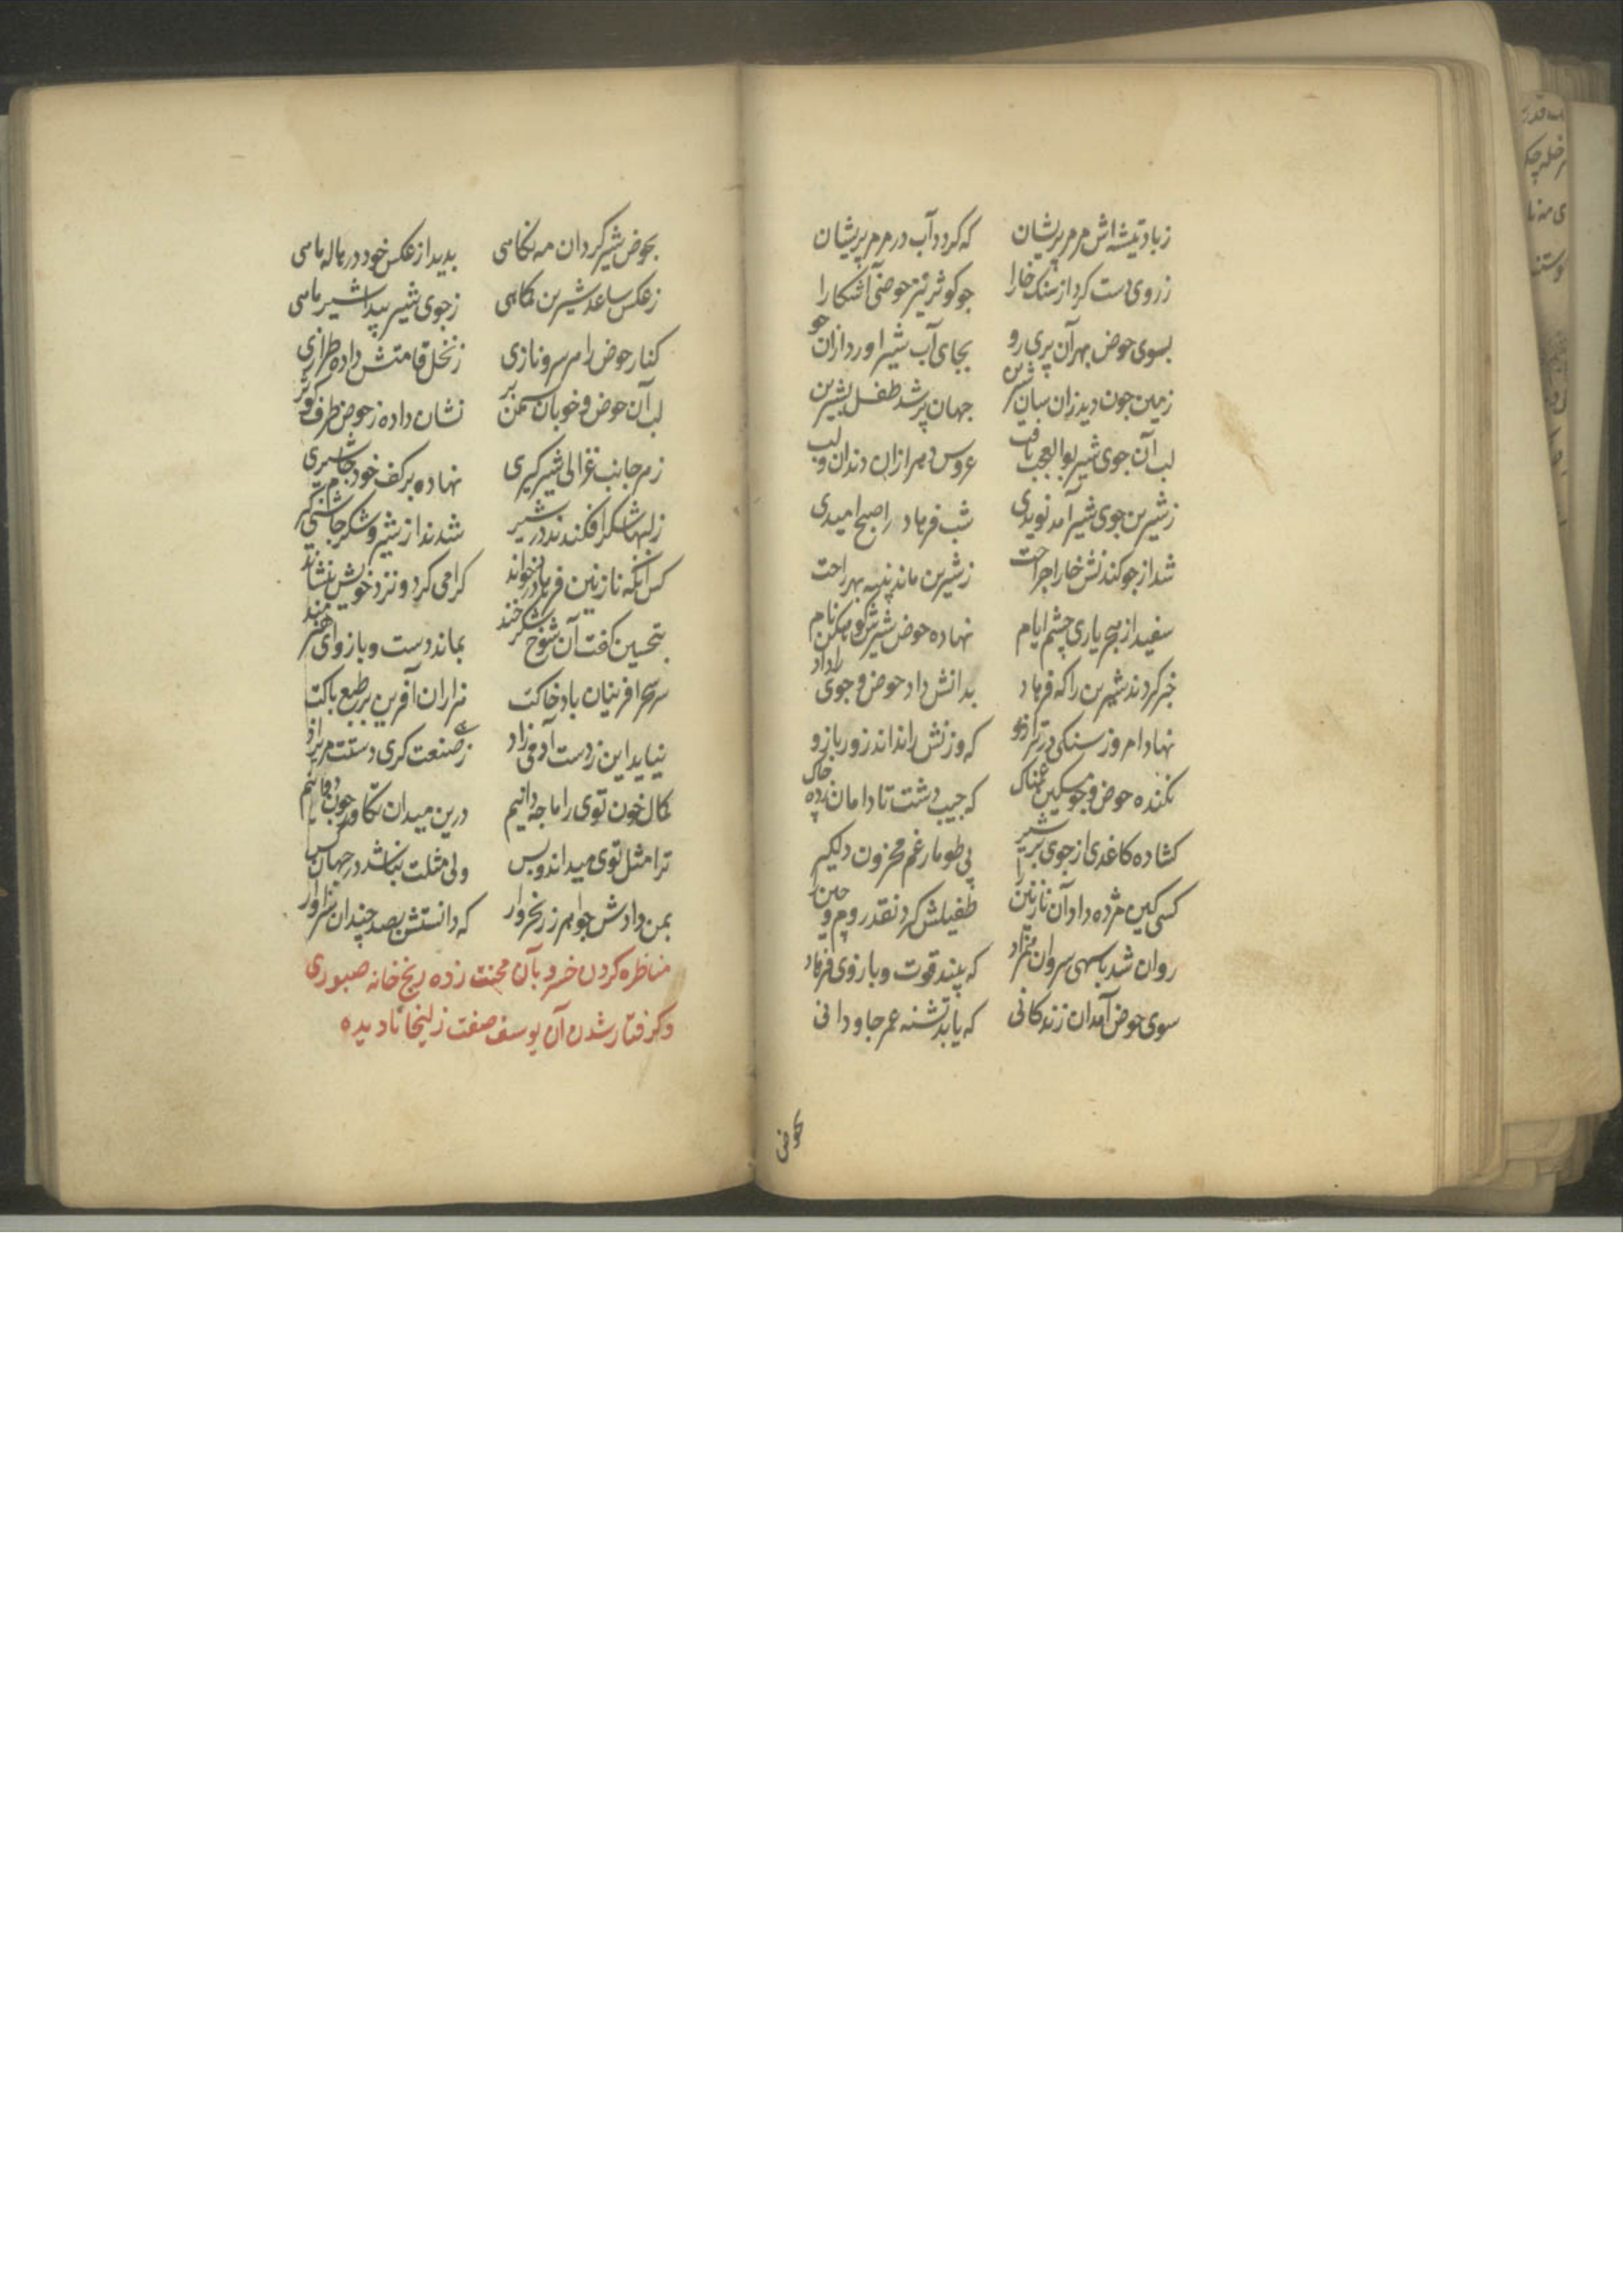 زباد تیشه اش مرمر پریشان که کردد آب در مرمر پریشان
ز روی دست کرد از سنک خارا جو کوثر نیز حوضی آشکارا
بسوی حوض بهر آن پری رو بجای آب شیر اورد ازان جو
زمین جون دید زان سان شیرین جهان پر شد طفل بشیرین
لب آن جوی شیر بوالعجب یافت عروس دهر ازان دندان و لب
ز شیرین جوی شیر آمد نویدی شب فرهاد را صبح امیدی
شد از جو کندنش خارا جراحت ز شیرین ماند پنبه بهر راحت
سفید از بی یاری چشم ایام نهاده حوض شیرش نام
خبر کردند شیرین را که فرهاد بدانش داد حوض و جوی را داد
نهاد امروز سنکی در ترازو که وزنش راند اندر زور بازو
نکنده حوض و جو مسکین غمناک که جیب دشت تا دامان زده جاک
کشاده کاغدی از جوی پر شیر پی طومار غم محزون دلکیر
کسی کین مژده داد آن نازنین را طفیلش کرد نقد روم و جین را
روان شد با سهی سروان که بیند قوت و بازوی فرهاد
سوی حوض آمد آن زندکانی که یابد تشنه عمر جاودانی
بحوض شیر کرد ان مه نکاهی بدید از عکس خود در هاله ماهی
ز عکس ساعد شیرین نکاهی ز جوی شیر پیدا شیر ماهی
کنار حوض را هر سرو نازی ز نخل قامتش داده طرازی
لب آن حوض و خوبان سمن بر نشان داده ز حوض طرف کوثر
ز هر جانب غزالی شیر کیری نهاده بر کف خود جام شیری
ز لبها شکر افکندند در شیر شدند از شیر و شکر جاشنی کیر
کس انکه نازنین فرهاد را خواند کرامی کرد و نزد خویش بنشاند
بتحسین کفت آن شوخ شکر خند بماند دست و بازو ای هنرمند
سر سحر افرینان باد خاکت هزاران آفرین بر طبع پاکت
نیاید این ز دست آدمی زاد ز صنعت کری دستت مریزاد
کمال خون توی را ما جه دانیم درین میدان
ترا مثل توی میداند و بس ولی مثلت نباشد در جهان کس
بمن دادش جواهر زر بخروار که دانستش بصد چندان سزاوار
مناظره کردن خسرو بآن محنت زده رنج خانه صبوری
و کرفتار شدن آن یوسف صفت زلیخا نادیده